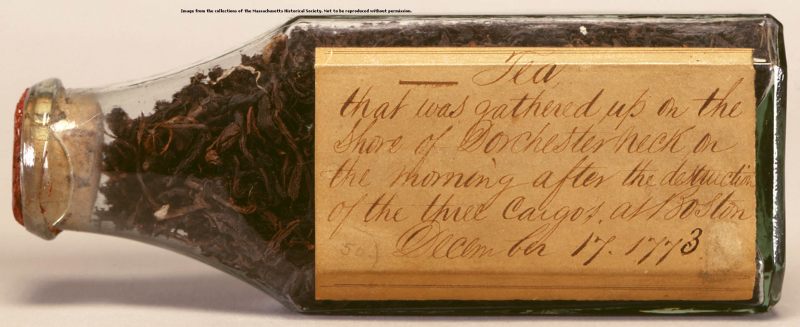 Image from the collections of the Massachusetts Historical Society. Not to be reproduced without permission.
Tea
that was gathered up on the
Shore of Dorchester neck on
the morning after the destruction
of the three Cargos, at Boston
December 17. 1773